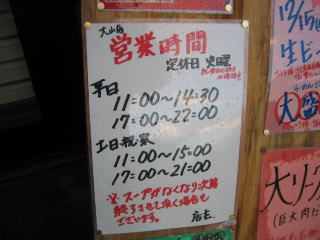 大山店
営業時間
定休日 火曜
平日
11:00〜14:30
17:00〜22:00
土日祝祭
11:00〜15:00
17:00〜21:00
※スープがなくなり次第
終了させて頂く場合も
ございます。 店主
12/15
生ビ
大盛
大リー
(巨大肉だ